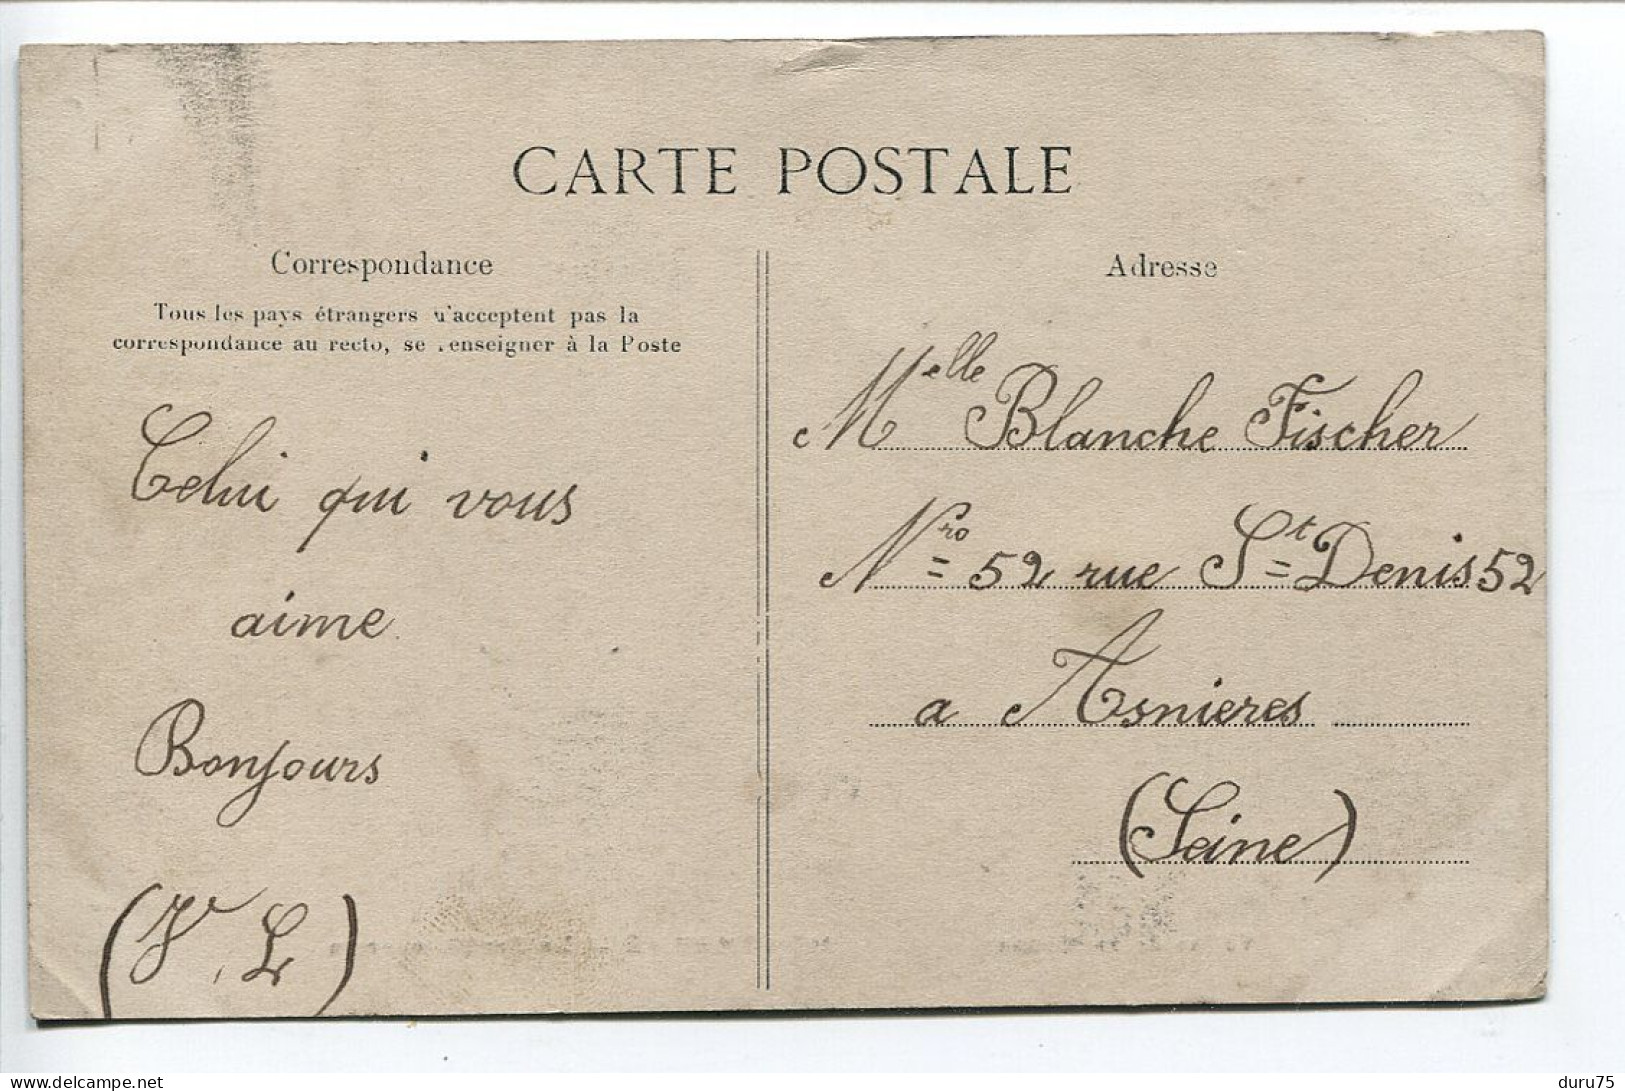 CARTE POSTALE
Correspondance
Tous les pays étrangers n'acceptent pas la
correspondance au recto, se renseigner à la Poste
Celui qui vous
aime
Bonjours
Adresse
Melle Blanche Fischer
Nro 52 rue St Denis 52
a Asnieres
(Seine)
delcampe.net
duru75